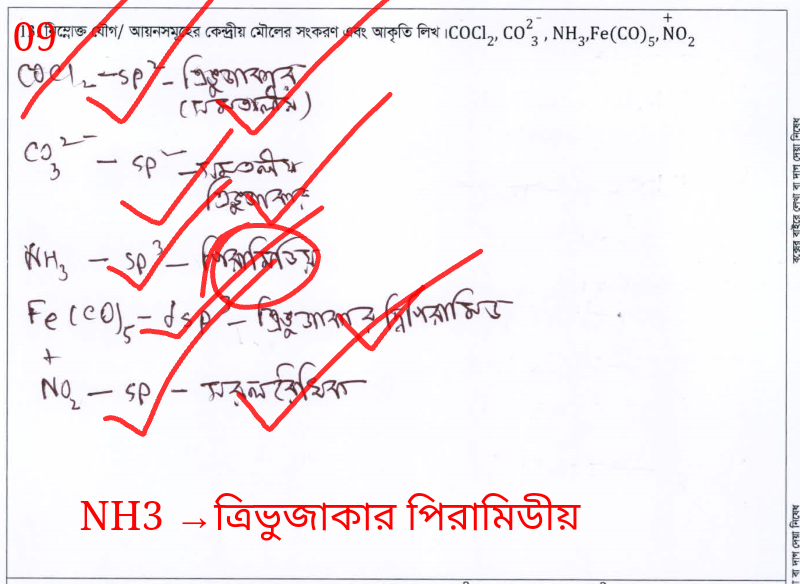 09
নিম্নোক্ত যৌগ/ আয়নসমূহের কেন্দ্রীয় মৌলের সংকরণ এবং আকৃতি লিখ।COCl₂, CO₃²⁻, NH₃,Fe(CO)₅, N⁺O₂
COCl₂ – sp² – ত্রিভুজাকার
(সমতলীয়)
CO₃²⁻ – sp² – সমতলীয়
ত্রিভুজাকার
NH₃ – sp³ – পিরামিডিয়
Fe(CO)₅ – dsp³ – ত্রিভুজাকার দ্বিপিরামিড
N⁺O₂ – sp – সরলরৈখিক
NH3 →ত্রিভুজাকার পিরামিডীয়